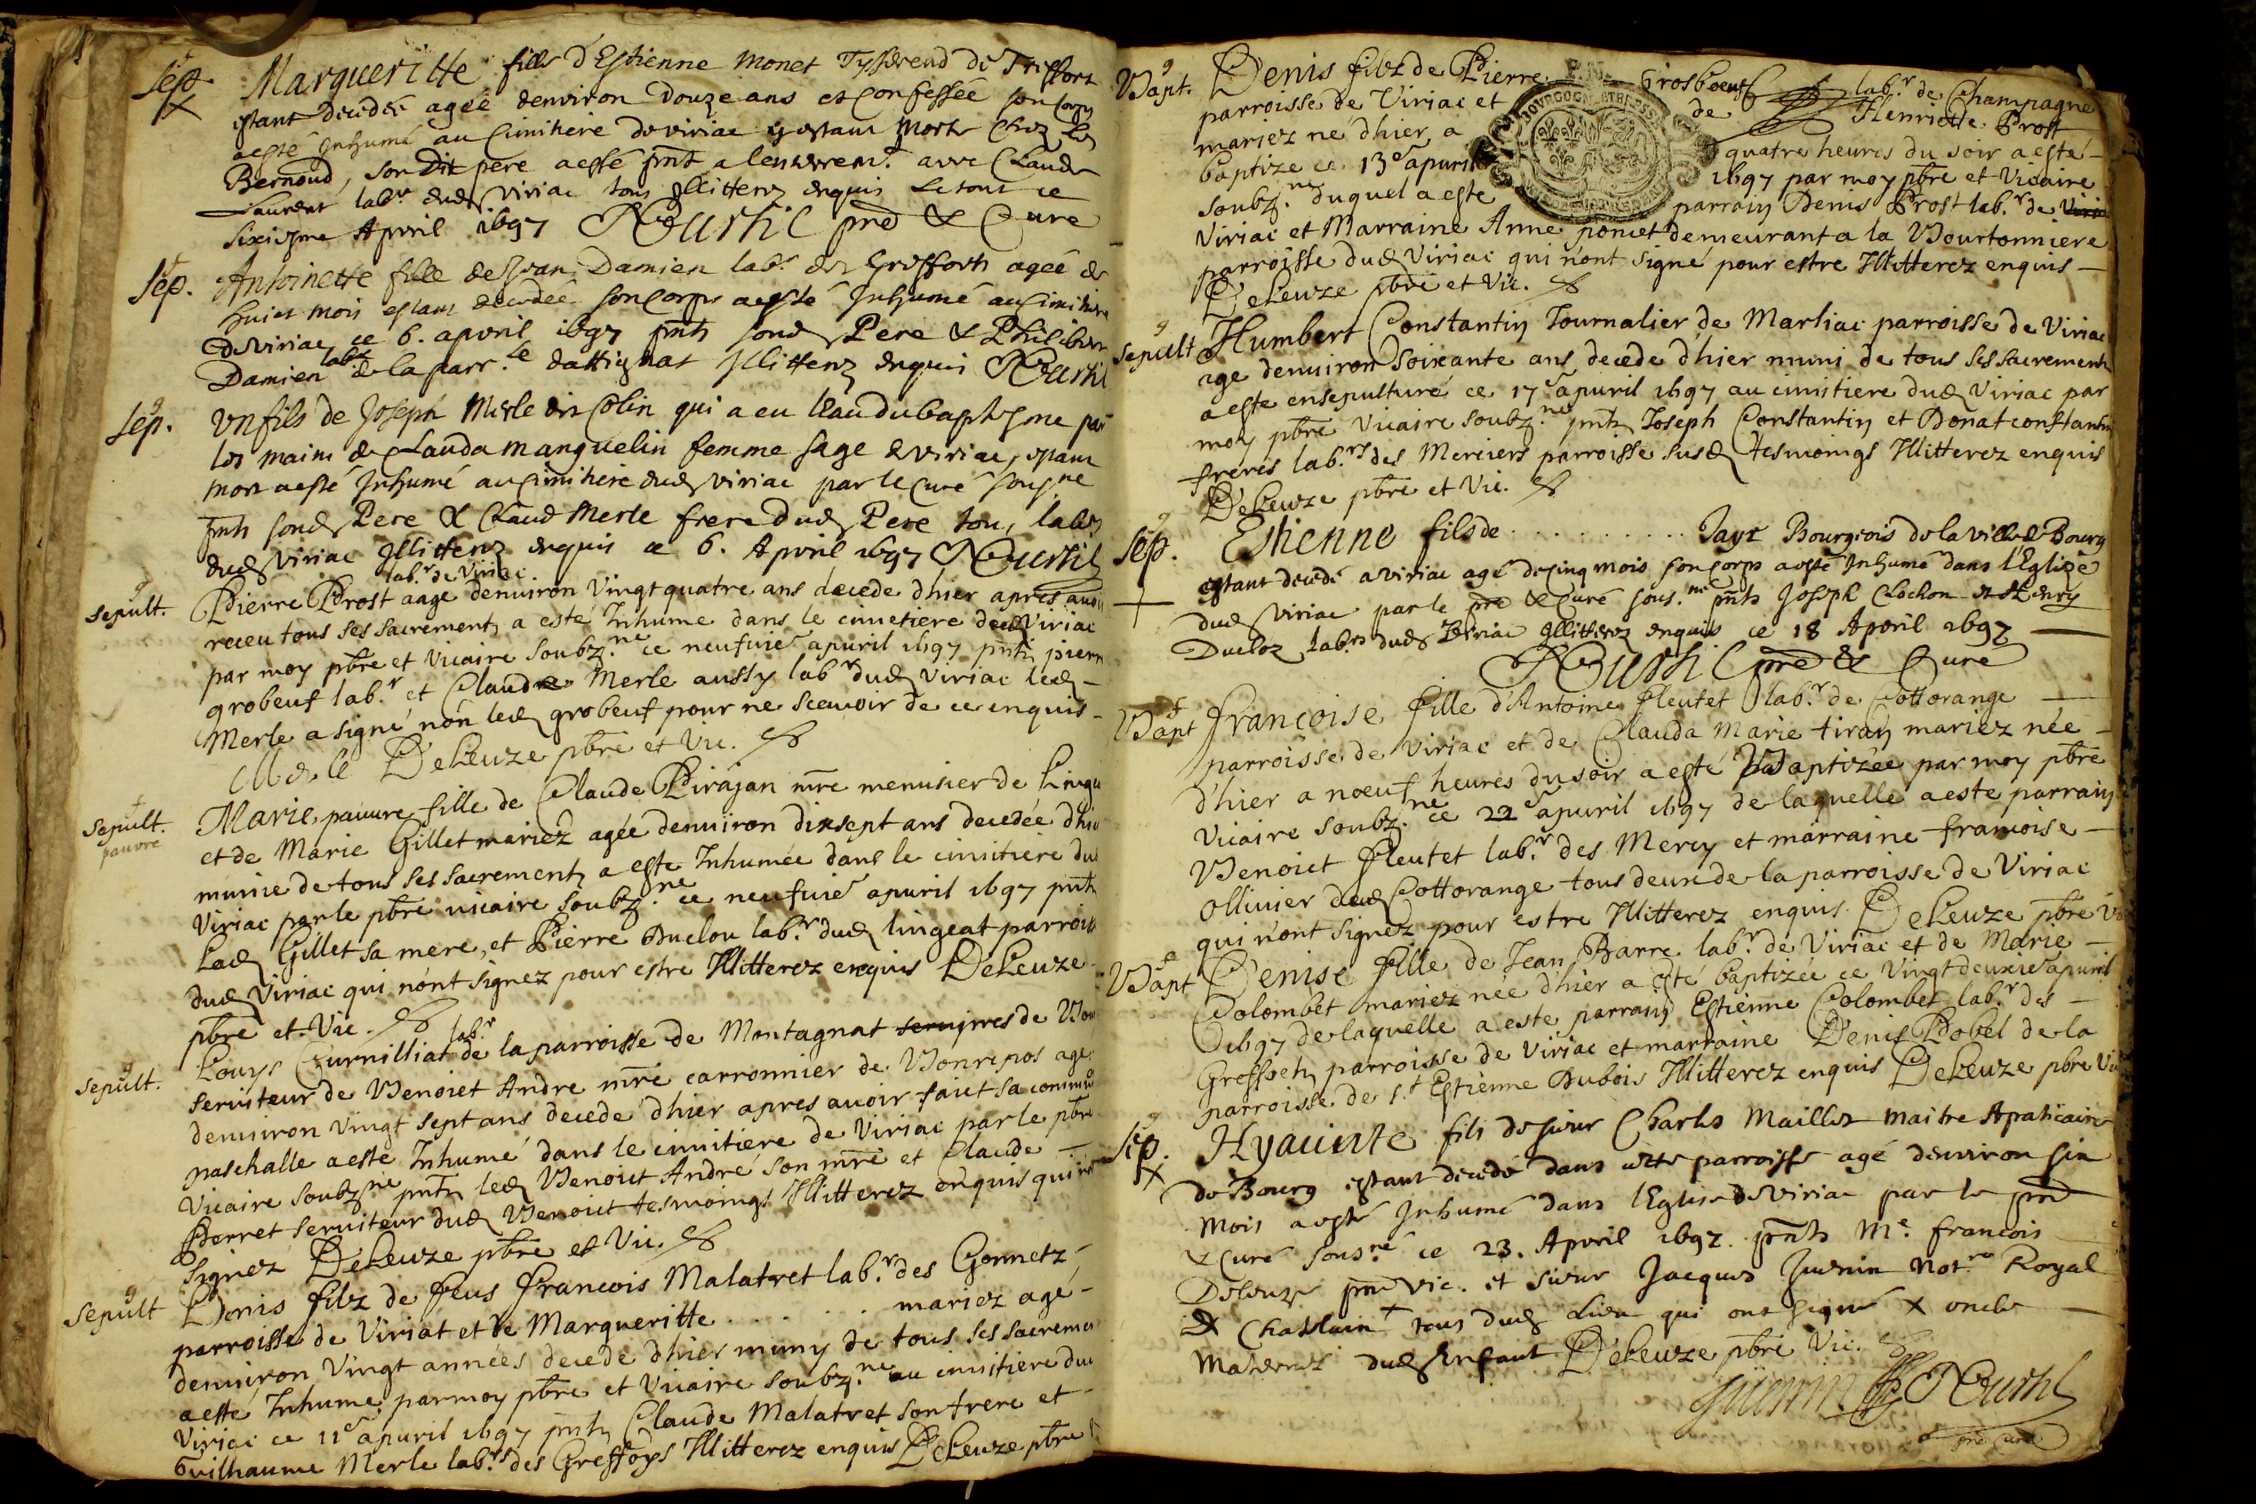 Sep. Margueritte fille d'Estienne Monet Tysserend de Treffort
estant decedée ageé denviron douze ans et confessée son corps
a esté Inhumé au Cimitiere de viriac y estant morte chez
Bernoud, son Dit pere a esté pnt a lenterremt. avec Claude
labr dud Viriac tous Illitterez enquis le tout ce
sixiesme Apvril 1697 pre & Cure
Sep. Antoinette fille de Jean Damien labr des Greffoth ageé de
huict mois estant decedeé son corps a esté Inhumé au Cimitiere
de viriac ce 6. apvril 1697 pnts sond Pere & Philibert
Damien labr de la parr.se dattignat Illitterez enquis
Sep. Un fils de Joseph Merle dit Colin qui a eu leau du baptesme par
les mains de Clauda Manguelin femme sage de viriac, estant
mort a esté Inhumé au Cimitiere dud viriac par le Curé sousigne
pnts sond Pere & Claude Merle frere dud Pere tous labrs
dud viriac Illitterez enquis ce 6. Apvril 1697
sepult. Pierre Prost labr. de Viriac aage denviron Vingt quatre ans decede dhier apres avoir
receu tous ses sacrements a esté Inhume dans le cimetiere dud Viriac
par moy pbre et Vicaire soubz.ne ce neufvie apuril 1697 pnts pierre
grobeuf lab.r et Claude Merle aussy labr dud Viriac led
Merle a signé non led grobeuf pour ne scavoir de ce enquis
Merle DeLeuze pbre et Vic.
sepult. pauvre Marie, pauvre fille de Claude Pirajan mre menusier de
et de Marie Gillet mariez agée denviron dixsept ans decedée dhier
munie de tous ses sacrements a esté Inhumée dans le cimitiere dud
Viriac par le pbre vicaire soubz.ne ce neufvie apuril 1697 pnts
Lad Gillet sa mere, et Pierre Duclou lab.r dud lingeat parroisse
dud Viriac qui n'ont signez pour estre Illitterez enquis DeLeuze
pbre et Vic.
sepult. Louys Curnilliat labr de la parroisse de Montagnat
serviteur de Benoict Andre mre carronnier de Bonrepos age
denviron Vingt sept ans decede dhier apres avoir faict sa commu
paschalle a esté Inhumé dans le cimitiere de Viriac par le pbre
Vicaire soubzne pnts led Benoict André son mre et Claude
Perret serviteur dud Benoict tesmoings Illitterez enquis qui n'ont
signez DeLeuze pbre et Vic.
sepult Denis filz de feus Francois Malatret lab.r des Gonnetz
parroisse de Viriat et de Margueritte . . . . . . mariez agé
denviron Vingt années decede dhier muny de tous ses sacremens
a esté Inhume, par moy pbre et Vicaire soubz.ne au cimitiere dud
Viriac ce 11e apuril 1697 pnts Claude Malatret son frere et
Guilhaume Merle lab.rs des Greffoys Illitterez enquis DeLeuze pbre
Bapt. Denis filz de Pierre Grosboeuf lab.r de Champagne
parroisse de Viriac et de Henriette Prost
mariez né dhier a quatre heures du soir a esté
baptize ce 13e apuril 1697 par moy pbre et Vicaire
soubz.ne duquel a este parrain Denis Prost lab.r de
Viriac et Marraine Anne poncet demeurant a la Bourtonniere
parroisse dud Viriac qui n'ont signé pour estre Illitterez enquis
DeLeuze pbre et Vic.
sepult Humbert Constantin Journalier de Marliac parroisse de Viriac
age denviron soixante ans decede dhier muni de tous ses sacrements
a este ensepulturé ce 17e apuril 1697 au cimitiere dud Viriac par
moy pbre Vicaire soubz.ne pnts Joseph Constantin et Donat constantin
freres lab.rs des Merciers parroisse susd tesmoings Illitterez enquis
DeLeuze pbre et Vic.
Sep. Estienne fils de . . . . . . . . . . Jayr Bourgeois de la ville de Bourg
estant decedé a viriac agé de cinq mois son corps a esté Inhumé dans l'Eglize
dud Viriac par le pre & Curé sous.ne pnts Joseph Clochon et Henry
Ducloz labrs dud Viriac Illitterez enquis ce 18 Apvril 1697
pre & Cure
Bapt françoise fille d'Antoine Pleutet lab.r de Cottorange
parroisse de Viriac et de Clauda Marie tiran mariez née
d'hier a noeuf heures du soir a esté Baptizée par moy pbre
Vicaire soubz.ne ce 22e apuril 1697 de laquelle a este parrain
Benoict Pleutet lab.r des Mercy et marraine francoise
Ollivier dud Cottorange tous deux de la parroisse de Viriac
qui n'ont signez pour estre Illitterez enquis DeLeuze pbre Vic
Bapt Denise fille de Jean Barre lab.r de Viriac et de Marie
Colombet mariez née d'hier a esté baptizée ce Vingt deuxie apuril
1697 de laquelle a este parrain Estienne Colombet lab.r des
Greffoeth parroisse de Viriac et marraine Denise Pobel de la
parroisse de s.t Estienne Dubois Illitterez enquis DeLeuze pbre Vic
Sep. Hyacinte fils de sieur Charles Maillet maitre Apaticaire
de Bourg estant decedé dans cette parroisse agé denviron six
mois a esté Inhumé dans l'Eglise de Viriac par le pre
& Curé sous.né ce 23. Apvril 1697. pnts Me. francois
Deleuze pre vic. et sieur Jacques Juenin Not.re Royal
& Chatelain tous dud Lieu qui ont signé X oncle
Maternel dud Enfant DeLeuze pbre Vic.
Juenin
pre Curé